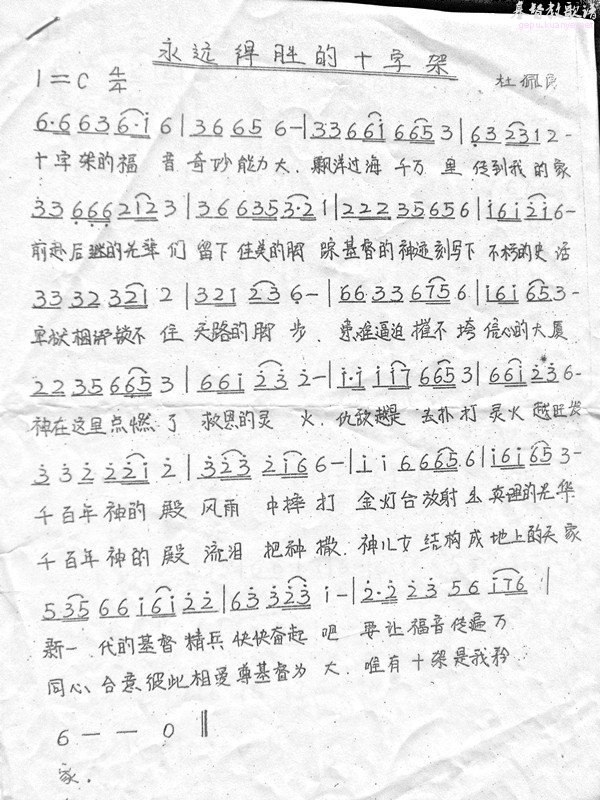 基督教歌谱
永远得胜的十字架
1=C 4/4
杜佩良
6·6 6 3 6·i 6 | 3 6 6 5 6 - | 3 3 6 6 i 6 6 5 3 | 6 3 2 3 1 2 -
十字架的福 音 奇妙能力大. 飘洋过海 千万 里 传到我的家
3 3 6 6 6 2 1 2 3 | 3 6 6 3 5 3·2 1 | 2 2 2 3 5 6 5 6 | i 6 i 2 i 6 -
前赴后继的先辈 们 留下 佳美的脚 踪 基督的神迹刻写下 不朽的史 话
3 3 3 2 3 2 1 2 | 3 2 1 2 3 6 - | 6 6 . 3 3 6 7 5 6 | i 6 i 6 5 3 -
牢狱 锁不 住 天路的脚 步. 患难逼迫 摧不 垮 信心的大厦
2 2 3 5 6 6 5 3 | 6 6 i 2 3 2 - | i·i i i 7 6 6 5 3 | 6 6 i 2 3 6 -
神在这里点燃 了 救恩的灵 火. 仇敌越是 去扑 打 灵火 越旺发
3 3 2 2 2 i 2 | 3 2 3 2 i 6 6 - | i i 6 6 6 5 6 | i 6 i 6 5 3 -
千百年 神的 殿 风雨 中摔 打 金灯台放射出 真理的光华
千百年 神的 殿 流泪 把种 撒. 神儿女 结构成 地上的天家
5 3 5 6 6 i 6 i 2 2 | 6 3 3 2 3 i - | 2·2 2 3 5 6 i 7 6 |
新一 代的基督 精兵 快快奋起 吧 要让 福音传遍 万
同心 合意 彼此相爱 尊基督为 大. 唯有 十架是我矜
6 — — 0 ‖
家.